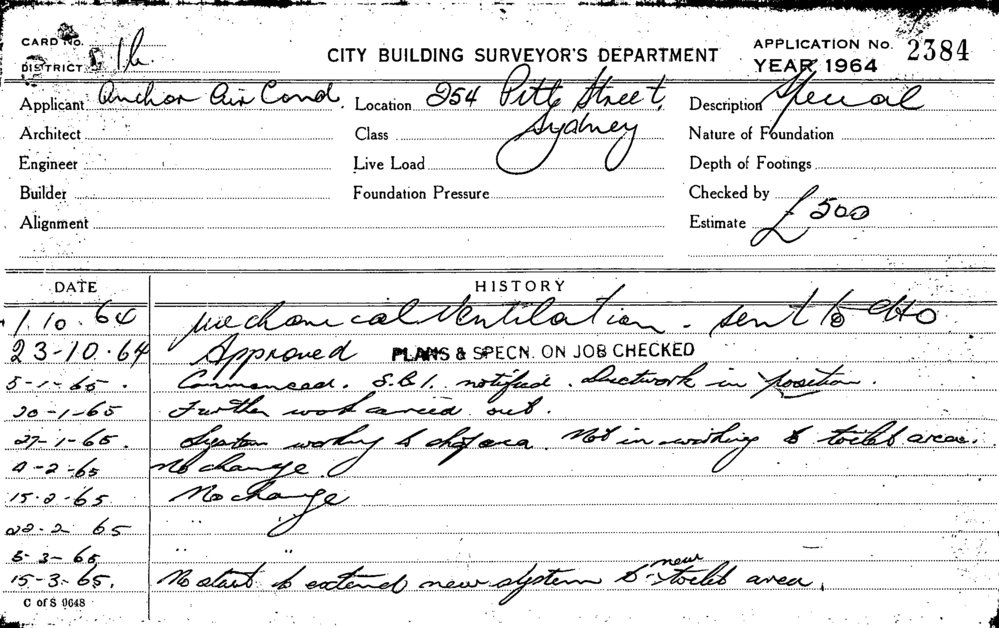 CARD No.
DISTRICT 1b.
CITY BUILDING SURVEYOR'S DEPARTMENT
APPLICATION No. 2384
YEAR 1964
Applicant Anchor Air Cond. Location 254 Pitt Street, Description Special
Sydney
Architect Class Nature of Foundation
Engineer Live Load Depth of Footings
Builder Foundation Pressure Checked by
Alignment Estimate £500
DATE HISTORY
1.10.64 Mechanical Ventilation. sent to
23-10.64 Approved PLANS & SPECN. ON JOB CHECKED
5-1-65. Commenced. S.B.I. notified. Ductwork in position.
20-1-65 Further work carried out.
27-1-65. System working to area. Not in working to toilet area.
4-2-65 No change.
15.2.65 No change
22-2 65 " "
5-3-65 " "
15-3-65. No start to extend new system to new toilet area.
C of S 9648